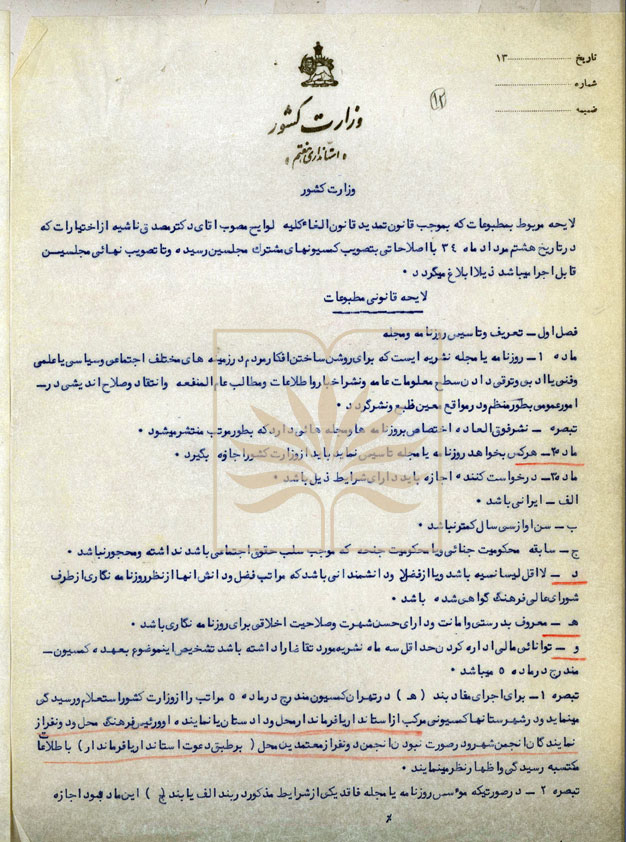 تاریخ ۱۳
شماره
ضمیمه
۱۲
وزارت کشور
استانداری هفتم
وزارت کشور
لایحه مربوط بمطبوعات که بموجب قانون تمدید قانون الغاء کلیه لوایح مصوب آقای دکتر مصدق ناشیه از اختیارات که
در تاریخ هشتم مرداد ماه ۳۴ با اصلاحاتی بتصویب کمسیونهای مشترك مجلسین رسیده و تا تصویب نهائی مجلسین
قابل اجرا میباشد ذیلا ابلاغ میگردد ۰
لایحه قانونی مطبوعات
فصل اول ـ تعریف و تاسیس روزنامه و مجله
ماده ۱ـ روزنامه یا مجله نشریه ایست که برای روشن ساختن افکار مردم در زمینه های مختلف اجتماعی و سیاسی یا علمی
و فنی یا ادبی و ترقی دادن سطح معلومات عامه و نشر اخبار و اطلاعات و مطالب عام المنفعه و انتقاد و صلاح اندیشی در ـ
امور عمومی بطور منظم و در مواقع معین طبع و نشر گردد ۰
تبصره ـ نشر فوق العاده اختصاص بروزنامه ها و مجله هائی دارد که بطور مرتب منتشر میشود ۰
ماده ۲ـ هرکس بخواهد روزنامه یا مجله تاسیس نماید باید از وزارت کشور اجازه بگیرد ۰
ماده ۳ـ درخواست کننده اجازه باید دارای شرایط ذیل باشد ۰
الف ـ ایرانی باشد ۰
ب ـ سن او از سی سال کمتر نباشد ۰
ج ـ سابقه محکومیت جنائی و یا محکومیت جنحه که موجب سلب حقوق اجتماعی باشد نداشته و محجور نباشد ۰
د ـ لااقل لیسانسیه باشد و یا از فضلا و دانشمندانی باشد که مراتب فضل و دانش انها از نظر روزنامه نگاری از طرف
شورای عالی فرهنگ گواهی شده باشد ۰
هـ ـ معروف بدرستی و امانت و دارای حسن شهرت و صلاحیت اخلاقی برای روزنامه نگاری باشد ۰
و ـ توانائی مالی اداره کردن حداقل سه ماه نشریه مورد تقاضا را داشته باشد تشخیص اینموضوع بعهده کمسیون ـ
مندرج در ماده ۵ میباشد ۰
تبصره ۱ـ برای اجرای مفاد بند ( هـ ) در تهران کمسیون مندرج در ماده ۵ مراتب را از وزارت کشور استعلام و رسیدگی
مینماید و در شهرستانها کمسیونی مرکب از استاندار یا فرماندار محل و دادستان یا نماینده او و رئیس فرهنگ محل و دو نفر از
نمایندگان انجمن شهر و در صورت نبودن انجمن دو نفر از معتمدین محل ( بر طبق دعوت استاندار یا فرماندار ) با طلاعات
مکتسبه رسیدگی و اظهار نظر مینمایند ۰
تبصره ۲ ـ در صورتیکه موسس روزنامه یا مجله فاقد یکی از شرایط مذکور در بند الف یا بند ( ج ) این ماده بود اجازه